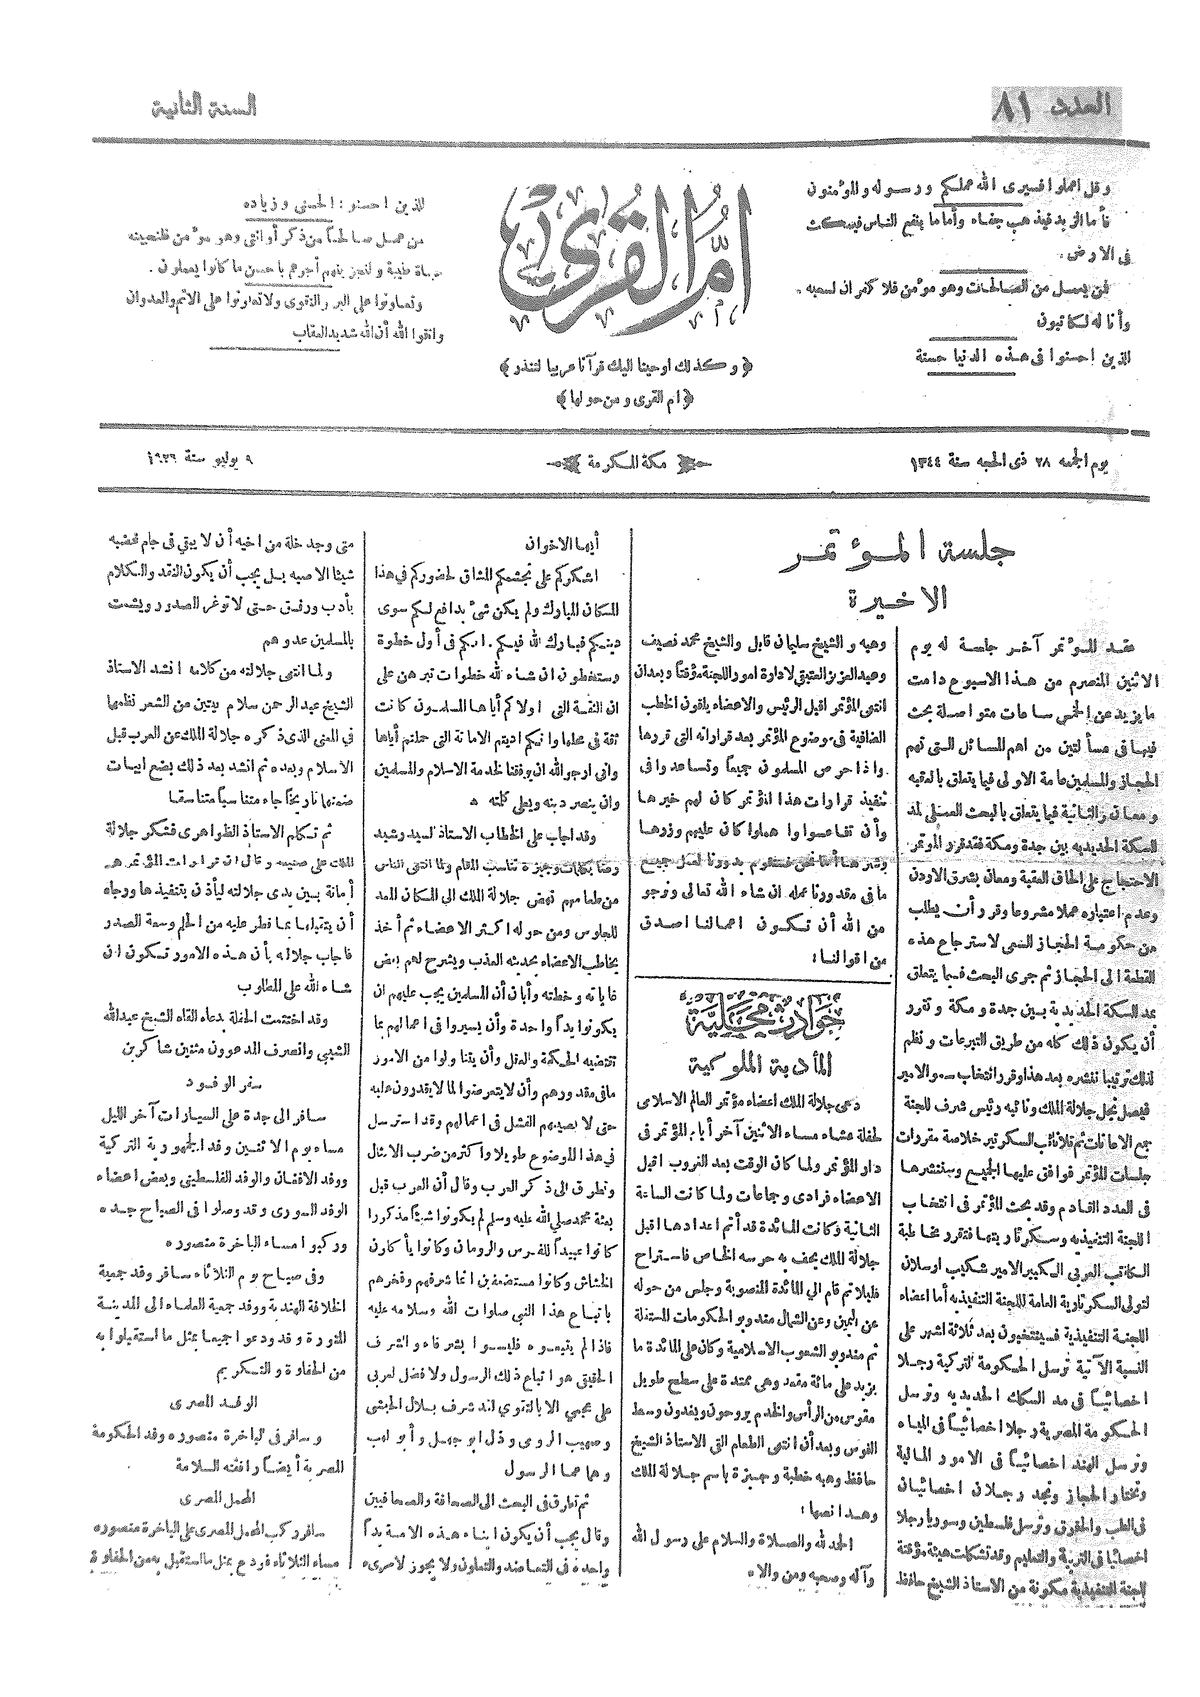 العدد ٨١
السنة الثانية
وقل اعملوا فسيرى الله عملكم ورسوله والمؤمنون
فأما الزبد فيذهب جفاء وأما ما ينفع الناس فيمكث
في الارض.
فمن يعمل من الصالحات وهو مؤمن فلا كفران لسعيه.
وأنا له لكاتبون
الذين احسنوا في هذه الدنيا حسنة
أم القرى
﴿وكذلك اوحينا اليك قرآنا عربيا لتنذر﴾
﴿ام القرى ومن حولها﴾
للذين احسنوا: الحسنى وزياده
من عمل صالحاً من ذكر أو انثى وهو مؤمن فلنحيينه
حياة طيبة ولنجزينهم أجرهم باحسن ما كانوا يعملون.
وتعاونوا على البر والتقوى ولا تعاونوا على الاثم والعدوان
واتقوا الله أن الله شديد العقاب
يوم الجمعه ٢٨ ذى الحجه سنة ١٣٤٤
مكة المكرمة
٩ يوليو سنة ١٩٢٦
جلسة المؤتمر
الاخيرة
عقد المؤتمر آخر جلسة له يوم
الاثنين المنصرم من هذا الاسبوع دامت
ما يزيد عن الخمس ساعات متواصلة بحث
فيها في مسألتين من اهم المسائل التي تهم
الحجاز والمسلمين عامة الاولى فيما يتعلق بالعقبه
ومعان والثانية فيما يتعلق بالبحث العملي لمد
السكة الحديديه بين جدة ومكة فقد قرر المؤتمر
الاحتجاج على الحاق العقبة ومعان بشرق الاردن
وعدم اعتباره عملا مشروعا وقرر أن يطلب
من حكومة الحجاز السعي لاسترجاع هذه
القطعة الى الحجاز ثم جرى البحث فيما يتعلق
بمد السكة الحديدية بين جدة ومكة وتقرر
أن يكون ذلك كله من طريق التبرعات ونظم
لذلك ترتيبا ننشره بعد هذا وقرر انتخاب سمو الامير
فيصل نجل جلالة الملك ونائبه رئيس شرف للجنة
جمع الاعانات ثم تلا نائب السكرتير خلاصة مقررات
جلسات المؤتمر فوافق عليها الجميع وسننشرها
في العدد القادم وقد بحث المؤتمر في انتخاب
اللجنة التنفيذيه وسكرتاريتها فتقرر مخاطبة
الكاتب العربى الكبير الامير شكيب ارسلان
لتولى السكرتارية العامة للجنة التنفيذيه أما اعضاء
اللجنة التنفيذية فسينتخبون بعد ثلاثة اشهر على
النسبة الآتية ترسل الحكومة التركية رجلا
اخصائياً في مد السكك الحديديه وترسل
الحكومة المصرية رجلا اخصائياً في المياه
وترسل الهند اخصائياً في الامور المالية
وتختار الحجاز ونجد رجلان اخصائيان
في الطب والحقوق وترسل فلسطين وسوريا رجلا
اخصائيا في التربية والتعليم وقد تشكلت هيئة مؤقتة
للجنة التنفيذية مكونة من الاستاذ الشيخ حافظ
وهبه والشيخ سليمان قابل والشيخ محمد نصيف
وعبد العزيز العتيقي لادارة امور اللجنة مؤقتاً وبعد ان
انتهى المؤتمر اقبل الرئيس والاعضاء يلقون الخطب
الضافية في موضوع المؤتمر بعد قراراته التي قررها
واذا حرص المسلمون جميعاً وتساعدوا في
تنفيذ قرارات هذا المؤتمر كان لهم خيرها
وأن تقاعسوا واهملوا كان عليهم وزرها
وشرها أما نحن فسنقوم بدورنا لعمل جميع
ما في مقدورنا عمله ان شاء الله تعالى ونرجو
من الله أن تكون اعمالنا اصدق
من اقوالنا:
حوادث محلية
المأدبة الملوكية
دعى جلالة الملك اعضاء مؤتمر العالم الاسلامى
لحفلة عشاء مساء الاثنين آخر أيام المؤتمر في
دار المؤتمر ولما كان الوقت بعد الغروب اقبل
الاعضاء فرادى وجماعات ولما كانت الساعة
الثانية وكانت المائدة قد أتم اعدادها اقبل
جلالة الملك يحف به حرسه الخاص فاستراح
قليلا ثم قام الى المائدة المنصوبة وجلس من حوله
عن اليمين وعن الشمال مندوبو الحكومات المستقلة
ثم مندوبو الشعوب الاسلامية وكان على المائدة ما
يزيد على مائة مقعد وهى ممتدة على سطح طويل
مقوس من الرأس والخدم يروحون ويغدون وسط
القوس وبعد أن انتهى الطعام القى الاستاذ الشيخ
حافظ وهبه خطبة وجيزة باسم جلالة الملك
وهذا نصها:
الحمد لله والصلاة والسلام على رسول الله
وآله وصحبه ومن والاه
أيها الاخوان
اشكركم على تجشمكم المشاق لحضوركم في هذا
المكان المبارك ولم يكن شئ بدافع لكم سوى
دينكم فبارك الله فيكم. انكم في أول خطوة
وستخطون ان شاء الله خطوات تبرهن على
ان الثقة التى اولاكم أياها المسلمون كانت
ثقة في محلها وانكم اديتم الامانة التى حملتم أياها
واني ارجو الله ان يوفقنا لخدمة الاسلام والمسلمين
وان ينصر دينه ويعلى كلمته
وقد اجاب على الخطاب الاستاذ السيد رشيد
رضا بكلمات وجيزة تناسب المقام ولما انتهى الناس
من طعامهم نهض جلالة الملك الى المكان المعد
للجلوس ومن حوله اكثر الاعضاء ثم أخذ
يخاطب الاعضاء بحديثه العذب ويشرح لهم بعض
غاياته وخطته وأبان أن المسلمين يجب عليهم ان
يكونوا يداً واحدة وأن يسيروا في اعمالهم بما
تقتضيه الحكمة والعقل وأن يتناولوا من الامور
ما في مقدورهم وأن لا يتعرضوا لما لا يقدرون عليه
حتى لا يصيبهم الفشل في اعمالهم وقد استرسل
في هذا الموضوع طويلا واكثر من ضرب الامثال
وتطرق الى ذكر العرب وقال أن العرب قبل
بعثة محمد صلى الله عليه وسلم لم يكونوا شيئاً مذكورا
كانوا عبيداً للفرس والرومان وكانوا يأكلون
الخشاش وكانوا مستضعفين انما شرفهم وفخرهم
باتباع هذا النبي صلوات الله وسلامه عليه
فاذا لم يتبعوه فليسوا بشرفاء والشرف
الحقيقى هو اتباع ذلك الرسول ولا فضل لعربى
على عجمي الا بالتقوى لقد شرف بلال الحبشى
وصهيب الرومى وذل ابو جهل وأبو لهب
وهما عما الرسول
ثم تطرق في البحث الى الصحافة والصحافيين
وقال يجب أن يكون ابناء هذه الامة يداً
واحده في التعاضد والتعاون ولا يجوز لامرىء
متى وجد خلة من اخيه أن لا يبقى في جام غضبه
شيئا الا صبه بل يجب أن يكون النقد والكلام
بأدب ورفق حتى لا توغر الصدور ويشمت
بالمسلمين عدوهم
ولما انتهى جلالته من كلامه انشد الاستاذ
الشيخ عبد الرحمن سلام بيتين من الشعر نظمها
في المعنى الذى ذكره جلالة الملك عن العرب قبل
الاسلام وبعده ثم انشد بعد ذلك بضع ابيات
ضمنها تاريخاً جاء متناسباً متناسقا
ثم تكلم الاستاذ الظواهرى فشكر جلالة
الملك على صنيعه وقال ان قرارات المؤتمر هى
أمانة بين يدى جلالته ليأذن بتنفيذها ورجاه
أن يتقبلها بما فطر عليه من الحلم وسعة الصدر
فاجاب جلالته بأن هذه الامور تكون ان
شاء الله على المطلوب
وقد اختتمت الحفلة بدعاء القاه الشيخ عبد الله
الشيبى وانصرف المدعوون مثنين شاكرين
سفر الوفود
سافر الى جدة على السيارات آخر الليل
مساء يوم الاثنين وفد الجمهورية التركية
ووفد الافغان والوفد الفلسطينى وبعض اعضاء
الوفد السورى وقد وصلوا في الصباح جده
وركبوا مساء الباخرة منصوره
وفى صباح يوم الثلاثاء سافر وفد جمعية
الخلافة الهندية ووفد جمعية العلماء الى المدينة
المنورة وقد ودعوا جميعا بمثل ما استقبلوا به
من الحفاوة والتكريم
الوفد المصرى
وسافر في الباخرة منصوره وفد الحكومة
المصرية أيضاً رافقته السلامة
المحمل المصرى
سافر ركب المحمل المصرى على الباخرة منصوره
مساء الثلاثاء فودع بمثل ما استقبل به من الحفاوة